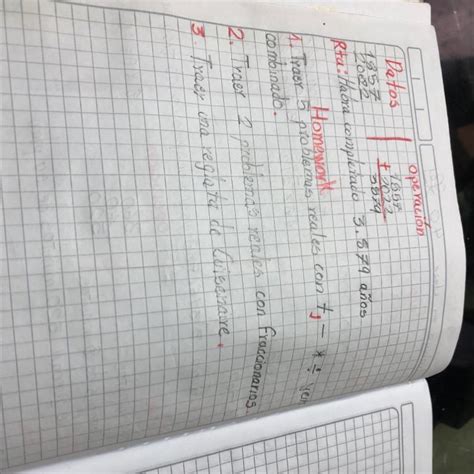 Datos Operación
1857 1857
2022 + 2022
3879
Rta: Habra completado 3.879 años
Homework
1. Traer 5 problemas reales con +, - * ÷
combinado.
2. Traer 2 problemas reales con fraccionarios
3. Traer una regleta de